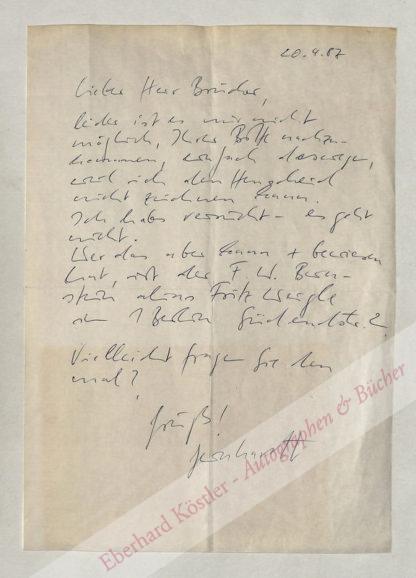 20.4.87
Lieber Herr Bruder,
leider ist es mir nicht
möglich, Ihrer Bitte nachzu-
kommen, einfach deswegen,
weil ich den
nicht zeichnen kann.
Ich habs versucht - es geht
nicht.
Wer das aber kann + bewiesen
hat, ist der F. W. Bern-
stein alias Fritz Weigle
in 1 Berlin
Vielleicht fragen Sie den
mal?
Gruß!
Gernhardt
Eberhard Köstler - Autographen & Bücher